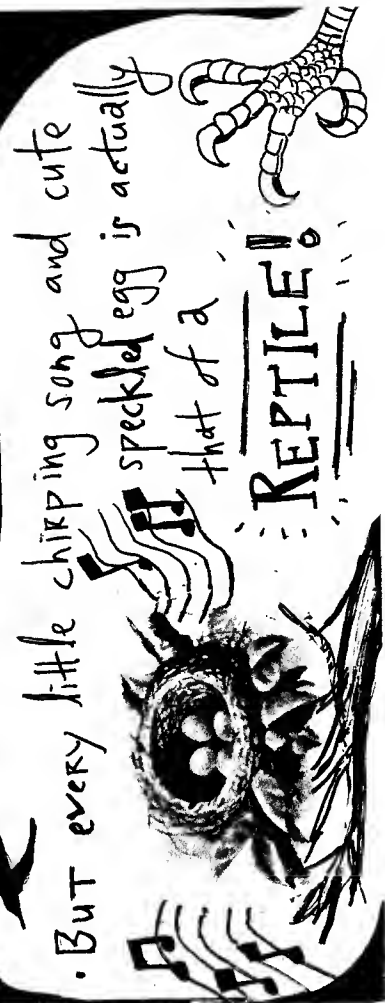 • BUT every little chirping song and cute
speckled egg is actually
that of a
REPTILE!